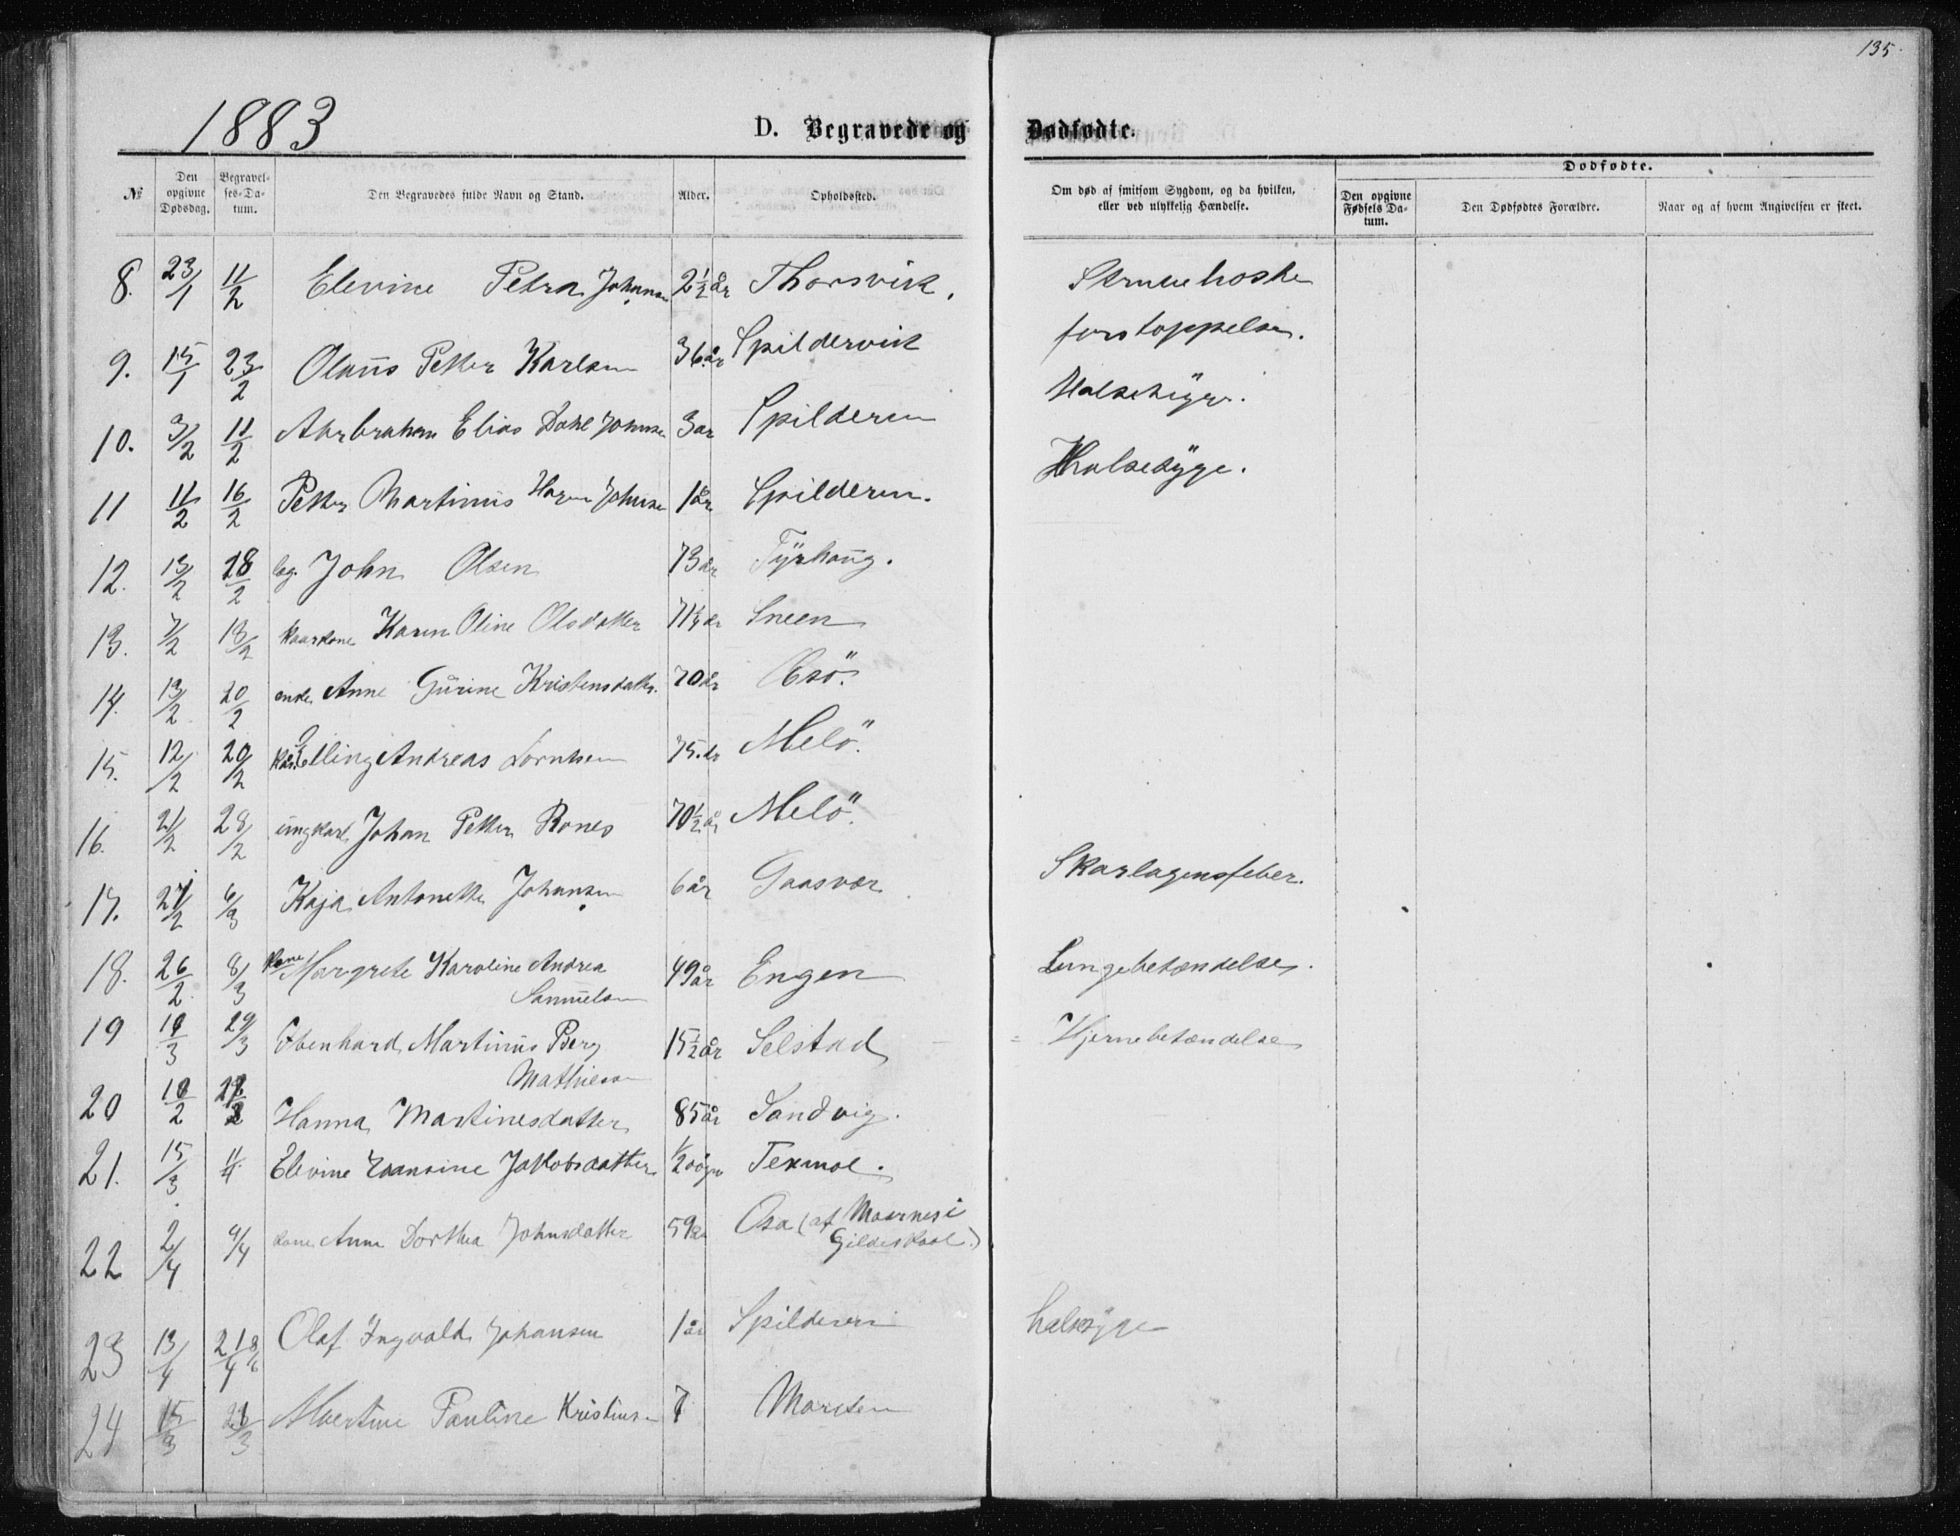 135.
1883
D. Begravede og Dødfødte.
№
Den opgivne Dødsdag.
Begravelses-Datum.
Den Begravedes fulde Navn og Stand.
Alder.
Opholdssted.
Om død af smitsom Sygdom, og da hvilken, eller ved ulykkelig Hændelse.
Dødfødte.
Den opgivne Fødsels Datum.
Den Dødfødtes Forældre.
Naar og af hvem Angivelsen er skeet.
8. 23/1 11/2 Elevine Petra Johansen 2½ år Thorsvik. Strubehoste
9. 15/1 23/2 Olaus Petter Karlsen 36 år Spildervik forstoppelse.
10. 3/2 11/2 Abrbraham Elias Dahl Johnsen 3 år Spilderen Halsesyge.
11 11/2 16/2 Petter Martinus Johnsen 1 år Spilderen. Halsesyge.
12. 13/2 18/2 læg. John Olsen 73 år Tyrhaug.
13. 7/2 13/2 kaarkone Karen Oline Olsdatter 71½ år Sneen
14. 13/2 20/2 enke Anne Gurine Kristensdatter. 70 år Esø.
15. 12/2 20/2 Elling Andreas Lorntsen 75. år Melø.
16. 21/2 28/2 ungkarl Johan Petter Rones 70½ år Melø.
17. 27/2 6/3 Kaja Antonette Johansen 6 år Gaasvær Skarlagensfeber.
18. 26/2 8/3 kone Margrete Karoline Andrea 49 år Engen Lungebetændelse.
Samuelsen
19 19/3 29/3 Ebenhard Martinus Berg 15½ år Selstad Hjernebetændelse
Mathiesen
20 10/2 Hanna Martinesdatter 85 år Sandvig.
21. 15/3 11/4 Elevine Hansine Jakobsdatter ½ døgn Texmoe.
22 2/4 9/4 kone Anne Dorthea Johnsdatter 59 år Osa (af Maarnes i
Gildeskaal.)
23 13/4 21/4 8/6 Olaf Ingvald Johansen 1 år Spilderen halssyge
24 15/3 21/3 Martine Pauline Kristiansen 7 Marsten